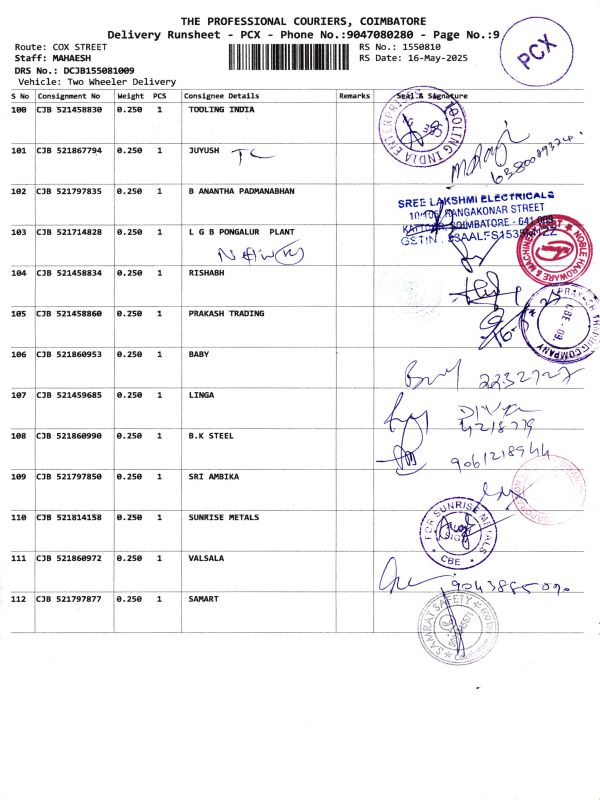 THE PROFESSIONAL COURIERS, COIMBATORE
Delivery Runsheet - PCX - Phone No.:9047080280 - Page No.:9
Route: COX STREET
RS No.: 1550810
Staff: MAHAESH
RS Date: 16-May-2025
DRS No.: DCJB155081009
Vehicle: Two Wheeler Delivery
PCX
S No Consignment No Weight PCS Consignee Details Remarks Seal & Signature
100 CJB 521458830 0.250 1 TOOLING INDIA
TOOLING INDIA ENTERPRISES
101 CJB 521867794 0.250 1 JUYUSH TC
102 CJB 521797835 0.250 1 B ANANTHA PADMANABHAN
SREE LAKSHMI ELECTRICALS
RANGAKONAR STREET
COIMBATORE - 641 009
103 CJB 521714828 0.250 1 L G B PONGALUR PLANT
NOBLE HARDWARE & MACHINERY MART
104 CJB 521458834 0.250 1 RISHABH
105 CJB 521458860 0.250 1 PRAKASH TRADING
PRAKASH TRADING COMPANY
CBE - 09.
106 CJB 521860953 0.250 1 BABY
107 CJB 521459685 0.250 1 LINGA
108 CJB 521860990 0.250 1 B.K STEEL
109 CJB 521797850 0.250 1 SRI AMBIKA
110 CJB 521814158 0.250 1 SUNRISE METALS
FOR SUNRISE METALS
CBE
111 CJB 521860972 0.250 1 VALSALA
112 CJB 521797877 0.250 1 SAMART
SAMRAT SAFETY